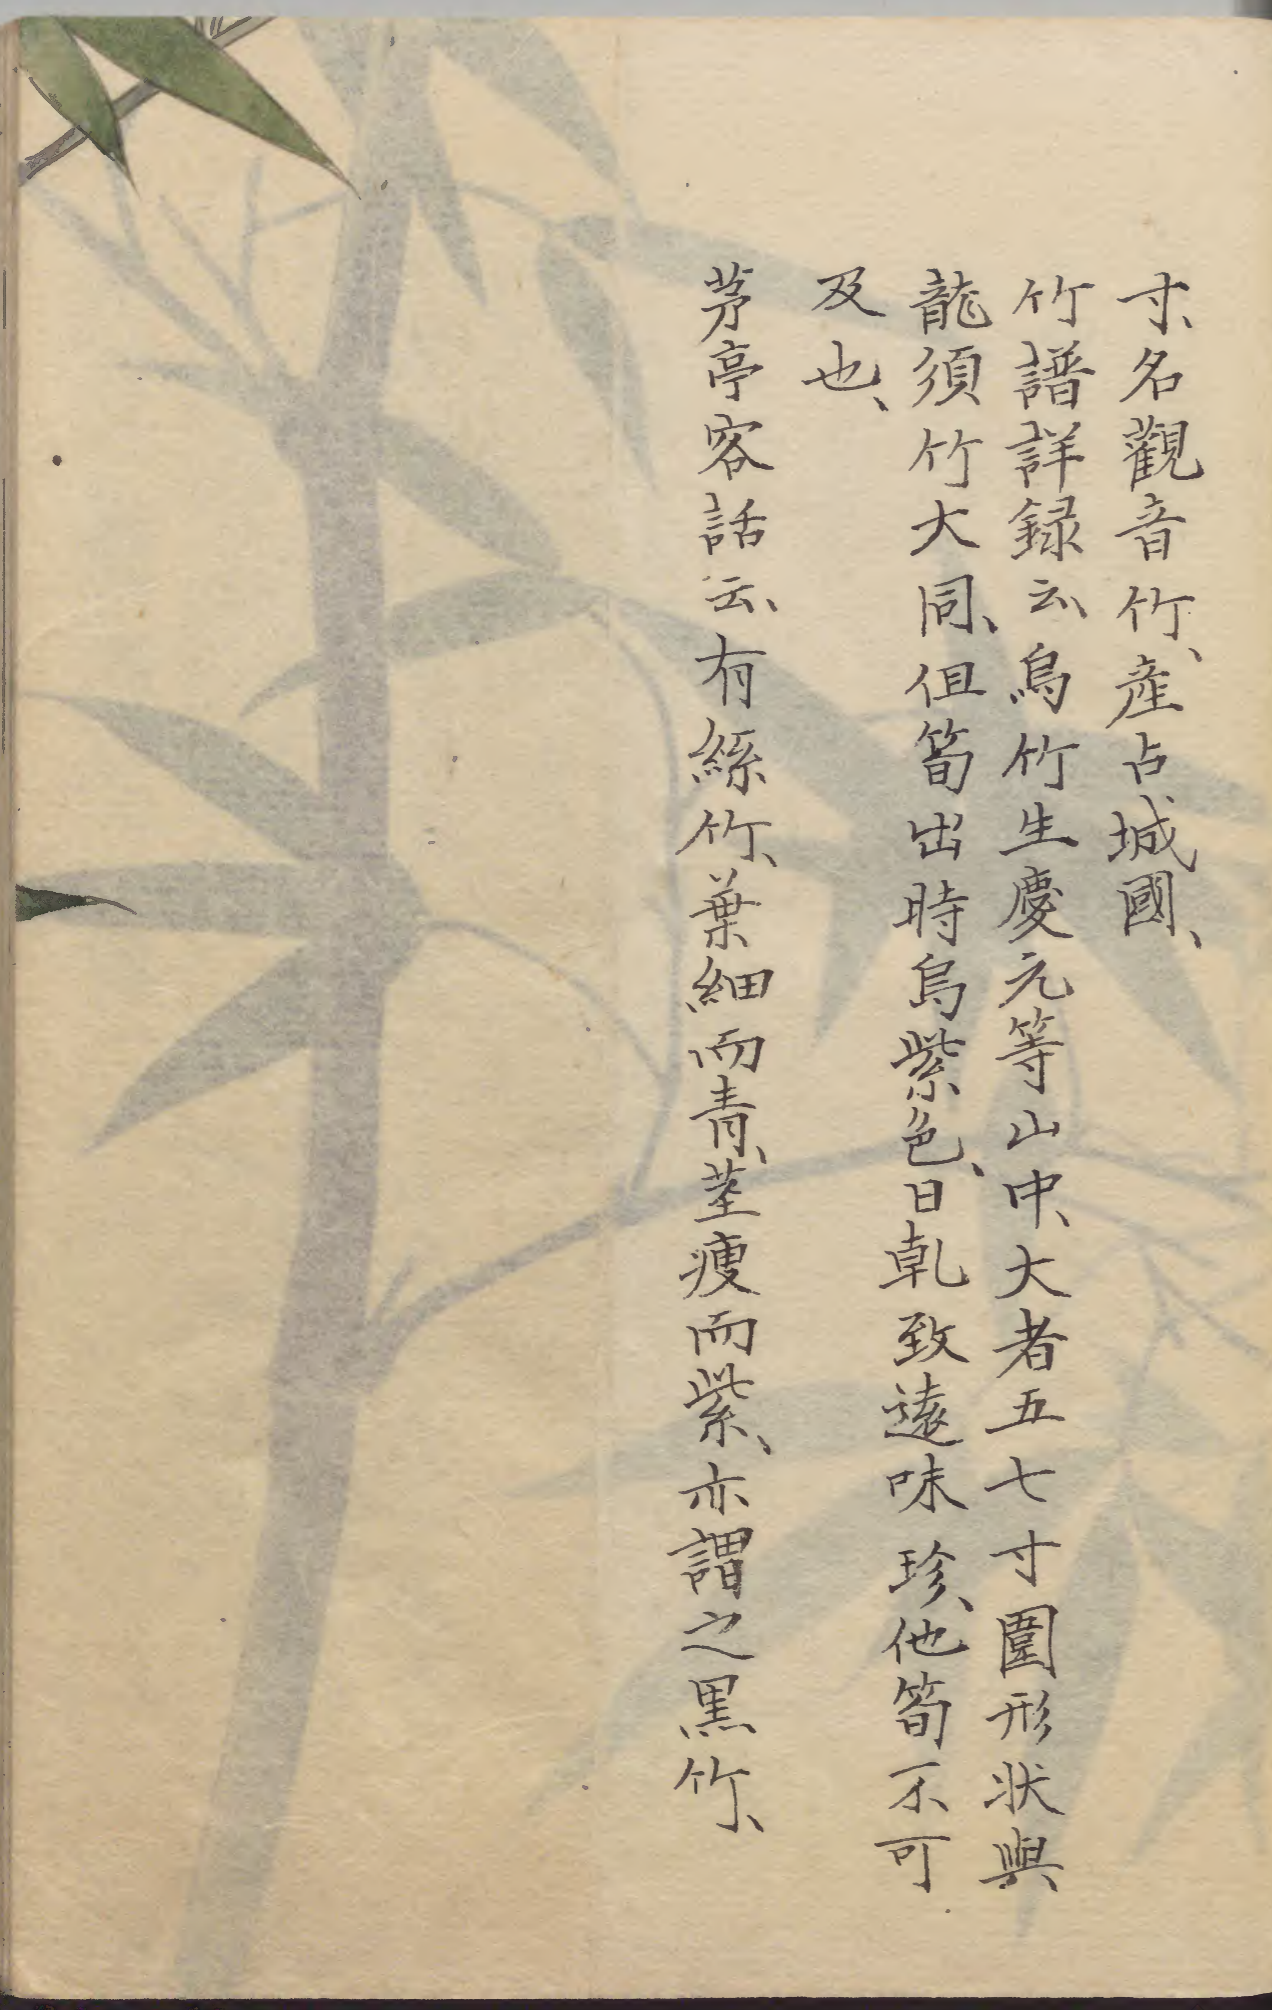 寸、名觀音竹、産占城國、
竹譜詳録云、烏竹生慶元等山中、大者五七寸圍形状與
龍須竹大同、但筍出時烏紫色、日乹致遠味珍、他筍不可
及也、
茅亭客話云、有絲竹、葉細而青、莖瘦而紫、亦謂之黒竹、